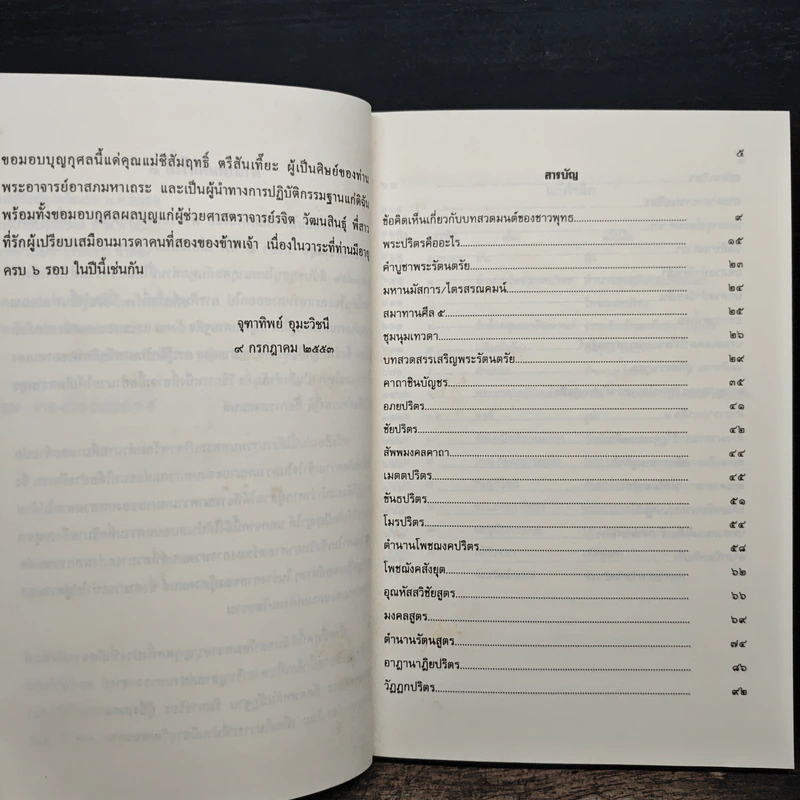 ขอมอบบุญกุศลนี้แด่คุณแม่ชีสัมฤทธิ์ ตรีสันเที๊ยะ ผู้เป็นศิษย์ของท่าน
พระอาจารย์อาสภมหาเถระ และเป็นผู้นำทางการปฏิบัติกรรมฐานแก่ดิฉัน
พร้อมทั้งขอมอบกุศลผลบุญแก่ผู้ช่วยศาสตราจารย์รจิต วัฒนสินธุ์ พี่สาว
ที่รักผู้เปรียบเสมือนมารดาคนที่สองของข้าพเจ้า เนื่องในวาระที่ท่านมีอายุ
ครบ ๖ รอบ ในปีนี้เช่นกัน
จุฑาทิพย์ อุมะวิชนี
๙ กรกฎาคม ๒๕๕๓
๕
สารบัญ
ข้อคิดเห็นเกี่ยวกับบทสวดมนต์ของชาวพุทธ ๙
พระปริตรคืออะไร ๑๕
คำบูชาพระรัตนตรัย ๒๓
มหานมัสการ/ไตรสรณคมน์ ๒๔
สมาทานศีล ๕ ๒๕
ชุมนุมเทวดา ๒๖
บทสวดสรรเสริญพระรัตนตรัย ๒๙
คาถาชินบัญชร ๓๕
อภยปริตร ๔๑
ชัยปริตร ๔๒
สัพพมงคลคาถา ๔๔
เมตตปริตร ๔๕
ขันธปริตร ๕๑
โมรปริตร ๕๔
ตำนานโพชฌงคปริตร ๕๘
โพชฌังคสังยุต ๖๒
อุณหัสสวิชัยสูตร ๖๖
มงคลสูตร ๖๙
ตำนานรัตนสูตร ๗๔
อาฏานาฏิยปริตร ๘๖
วัฏฏกปริตร ๙๒